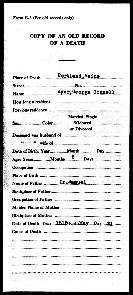 Form R-4 (For old records only)
COPY OF AN OLD RECORD
OF A DEATH
Place of Death Portland, Maine
Street No.
Name Ayer, George
How long a resident
Previous residence
Married, Single
Sex Color Widowed
or Divorced
Deceased was husband of
" " wife of
Date of Birth: Year Month Day
Age: Years Months 8 Days
Occupation
Place of Birth
Name of Father Samuel
Birthplace of Father
Occupation of Father
Maiden Name of Mother
Birthplace of Mother
Date of Death: Year Month May Day
Cause of Death